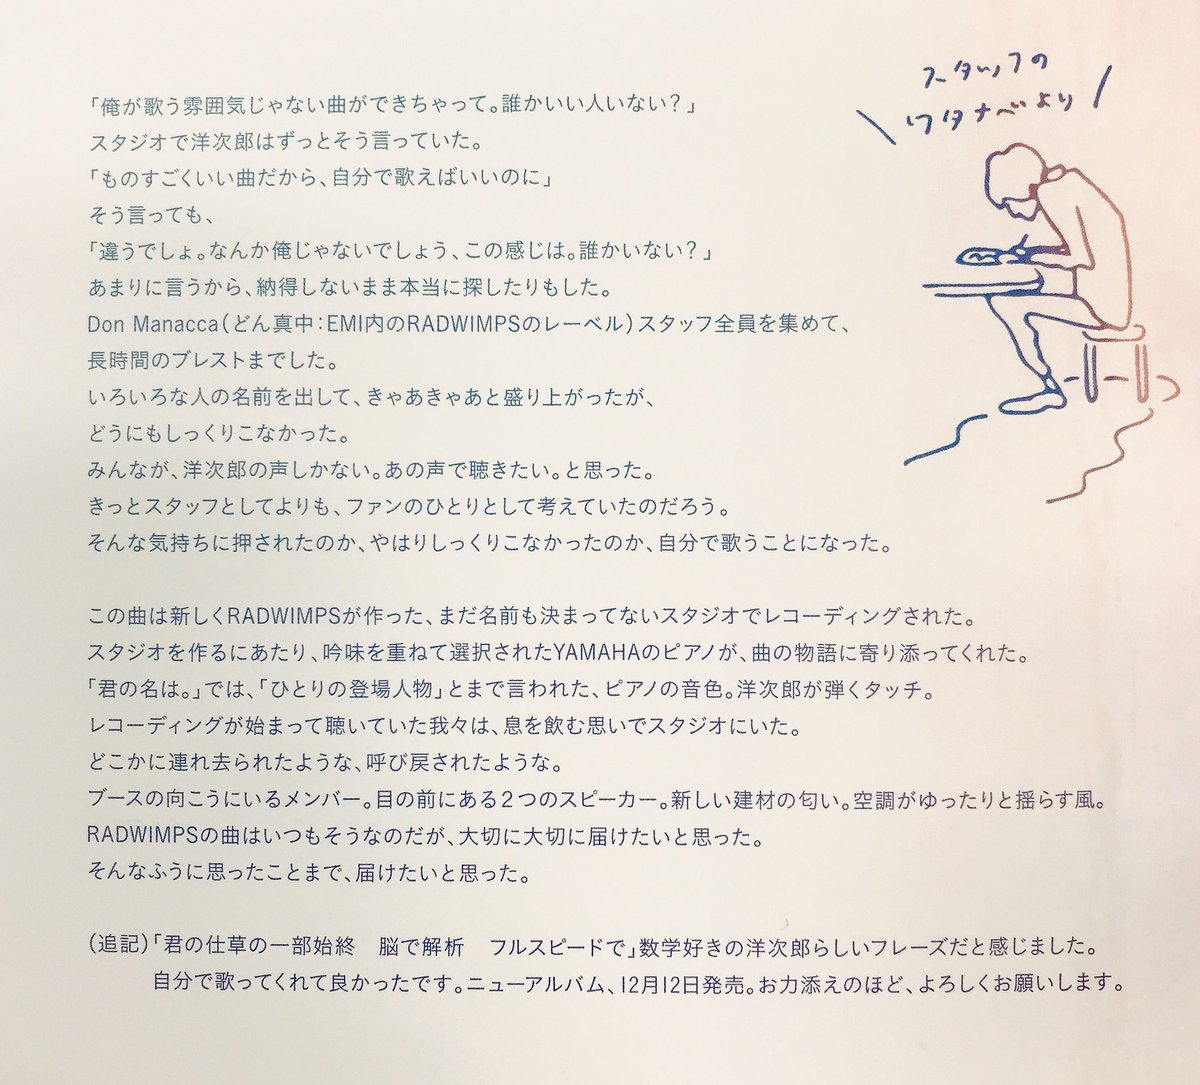 スタッフの
ワタナベより
「俺が歌う雰囲気じゃない曲ができちゃって。誰かいい人いない？」
スタジオで洋次郎はずっとそう言っていた。
「ものすごくいい曲だから、自分で歌えばいいのに」
そう言っても、
「違うでしょ。なんか俺じゃないでしょう、この感じは。誰かいない？」
あまりに言うから、納得しないまま本当に探したりもした。
Don Manacca（どん真中：EMI内のRADWIMPSのレーベル）スタッフ全員を集めて、
長時間のブレストまでした。
いろいろな人の名前を出して、きゃあきゃあと盛り上がったが、
どうにもしっくりこなかった。
みんなが、洋次郎の声しかない。あの声で聴きたい。と思った。
きっとスタッフとしてよりも、ファンのひとりとして考えていたのだろう。
そんな気持ちに押されたのか、やはりしっくりこなかったのか、自分で歌うことになった。
この曲は新しくRADWIMPSが作った、まだ名前も決まってないスタジオでレコーディングされた。
スタジオを作るにあたり、吟味を重ねて選択されたYAMAHAのピアノが、曲の物語に寄り添ってくれた。
「君の名は。」では、「ひとりの登場人物」とまで言われた、ピアノの音色。洋次郎が弾くタッチ。
レコーディングが始まって聴いていた我々は、息を飲む思いでスタジオにいた。
どこかに連れ去られたような、呼び戻されたような。
ブースの向こうにいるメンバー。目の前にある2つのスピーカー。新しい建材の匂い。空調がゆったりと揺らす風。
RADWIMPSの曲はいつもそうなのだが、大切に大切に届けたいと思った。
そんなふうに思ったことまで、届けたいと思った。
（追記）「君の仕草の一部始終　脳で解析　フルスピードで」数学好きの洋次郎らしいフレーズだと感じました。
自分で歌ってくれて良かったです。ニューアルバム、12月12日発売。お力添えのほど、よろしくお願いします。